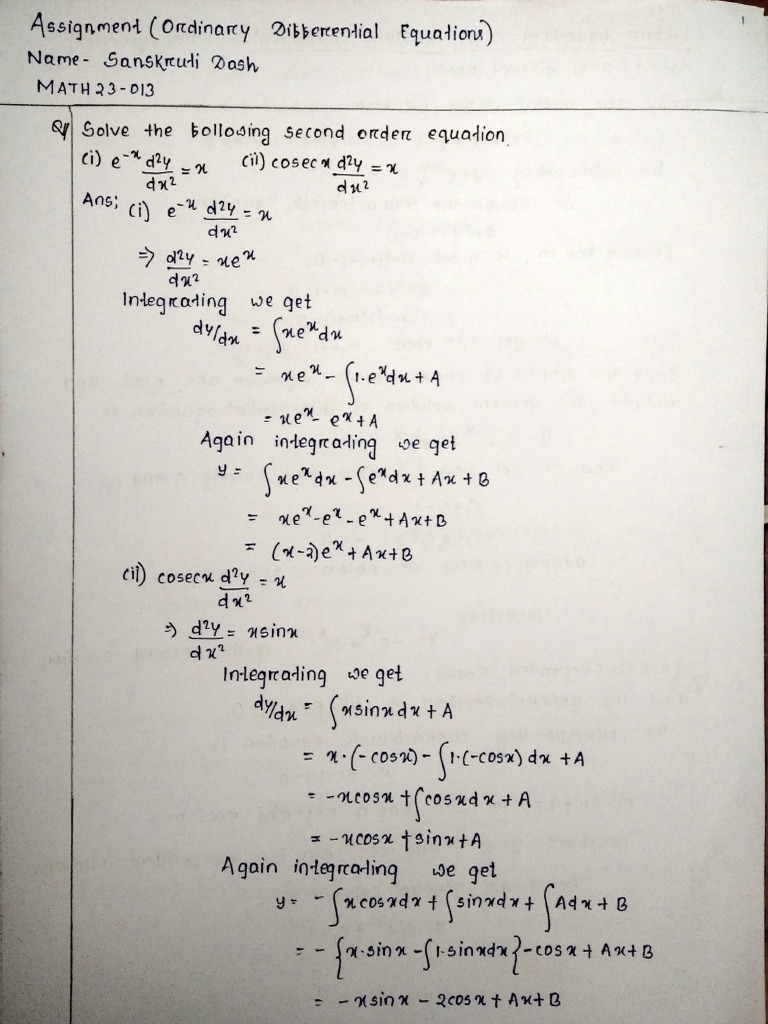 1
Assignment (Ordinary Differential Equations)
Name- Sanskruti Dash
MATH23-013
Q1 Solve the following second order equation.
(i) e⁻ˣ d²y/dx² = x (ii) cosec x d²y/dx² = x
Ans; (i) e⁻ˣ d²y/dx² = x
⇒ d²y/dx² = xeˣ
Integrating we get
dy/dx = ∫xeˣdx
= xeˣ - ∫1.eˣdx + A
= xeˣ - eˣ + A
Again integrating we get
y = ∫xeˣdx - ∫eˣdx + Ax + B
= xeˣ - eˣ - eˣ + Ax + B
= (x-2)eˣ + Ax + B
(ii) cosecx d²y/dx² = x
⇒ d²y/dx² = xsinx
Integrating we get
dy/dx = ∫xsinxdx + A
= x·(-cosx) - ∫1·(-cosx) dx + A
= -xcosx + ∫cosxdx + A
= -xcosx + sinx + A
Again integrating we get
y = -∫xcosxdx + ∫sinxdx + ∫Adx + B
= -{x·sinx - ∫1·sinxdx} - cosx + Ax + B
= -xsinx - 2cosx + Ax + B